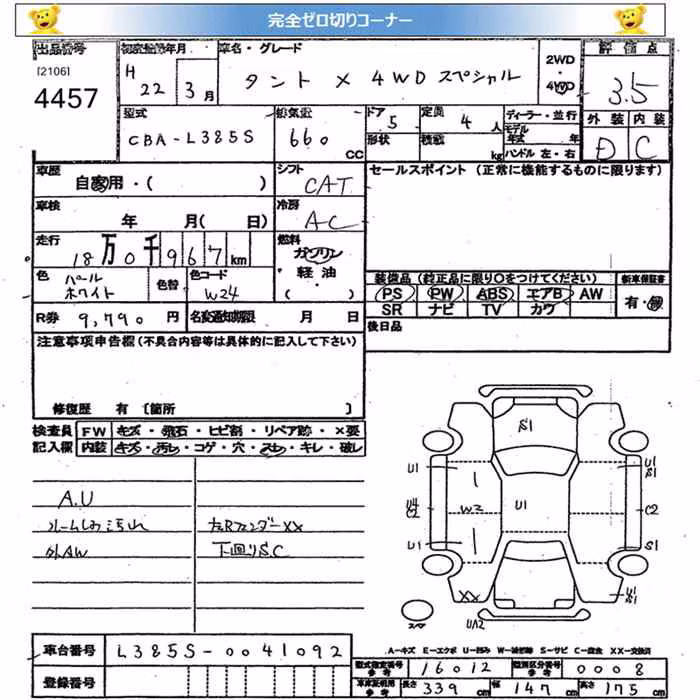 完全ゼロ切りコーナー
出品番号
[2106]
4457
初度登録年月
H 22 年 3 月
車名・グレード
タント X 4WD スペシャル
2WD
・
4WD
評価点
3.5
外装 内装
D C
型式
CBA-L385S
排気量
660
CC
ドア
5
形状
定員
4 人
積載
kg
ディーラー・並行
モデル
年式 年
ハンドル 左・右
車歴
自家用・( )
シフト
CAT
車検
年 月( 日)
冷房
AC
走行
18万0千967km
燃料
ガソリン
・
軽油
・
( )
色
パール
ホワイト
色替
色コード
W24
R券 9,790 円
名変通知期限 月 日
セールスポイント (正常に機能するものに限ります)
装備品 (純正品に限り○をつけてください)
PS PW ABS エアB AW
SR ナビ TV カワ
新車保証書
有・無
後日品
注意事項申告欄 (不具合内容等は具体的に記入して下さい)
修復歴 有 [箇所 ]
検査員
記入欄
FW キズ・飛石・ヒビ割・リペア跡・×要
内装 キズ・汚れ・コゲ・穴・スレ・キレ・破レ
A.U
ルームしみ汚れ
外AW
左Rフェンダーxx
下回りS.C
S1
U1
U1
S1
U4
C2
W2
U1
C2
U1
S1
XX
U1
S1
UA2
スペア
A-キズ E-エクボ U-凹み W-補修跡 S-サビ C-腐食 XX-交換済
車台番号 L385S-0041092
登録番号
型式指定番号
参考
16012
類別区分番号
参考
0008
車庫証明用
参考
長さ 339 cm
幅 147 cm
高さ 175 cm